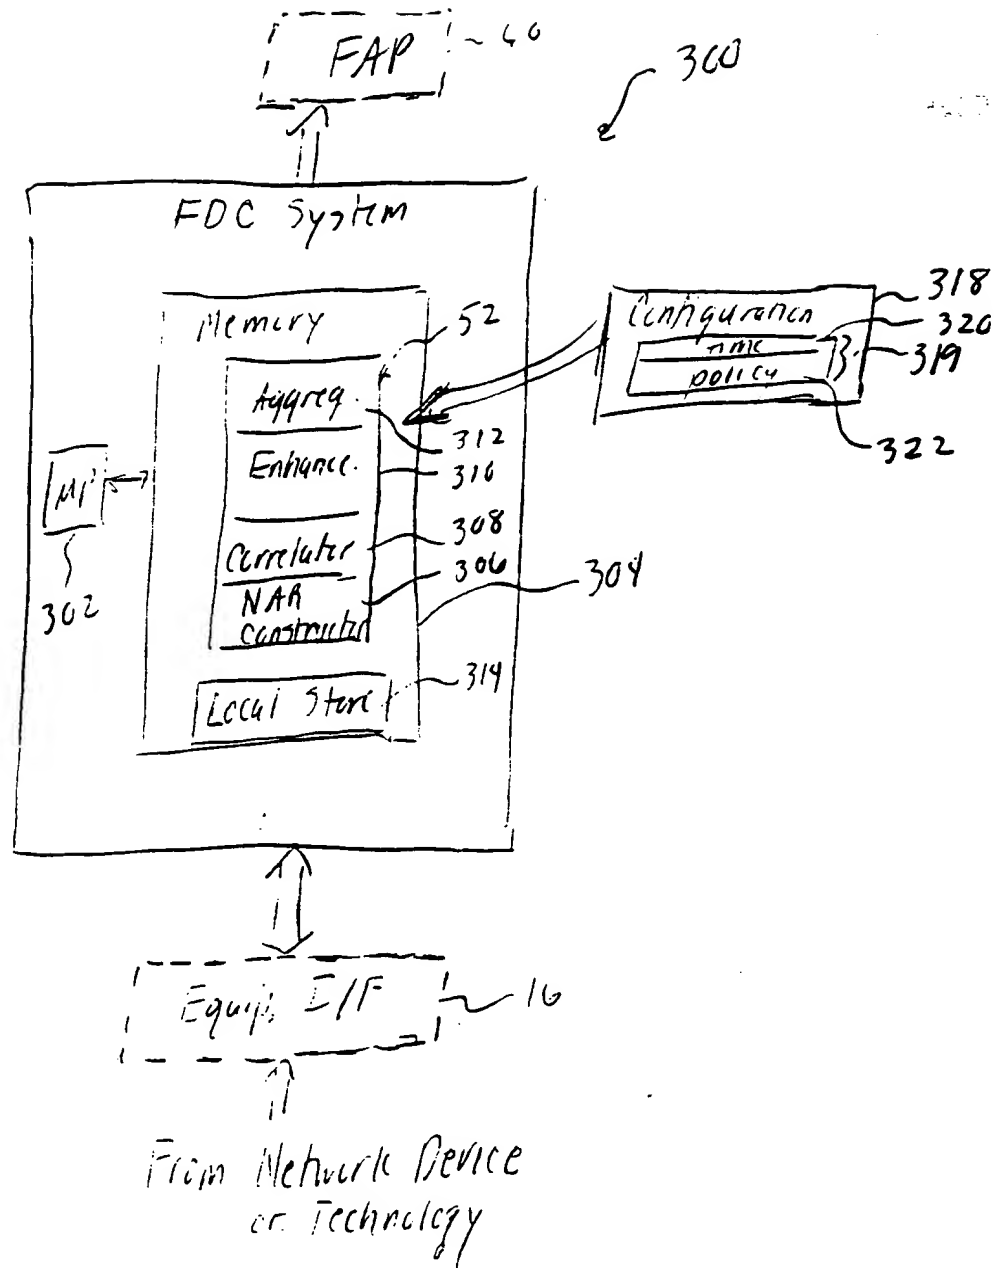 FAP
60
300
FDC System
Memory
52
Aggreg.
312
Enhance.
310
Correlator
308
NAR
306
Constructor
304
Local Store
314
μP
302
Configuration
318
time
320
policy
319
322
Equip. I/F
16
From Network Device
or Technology